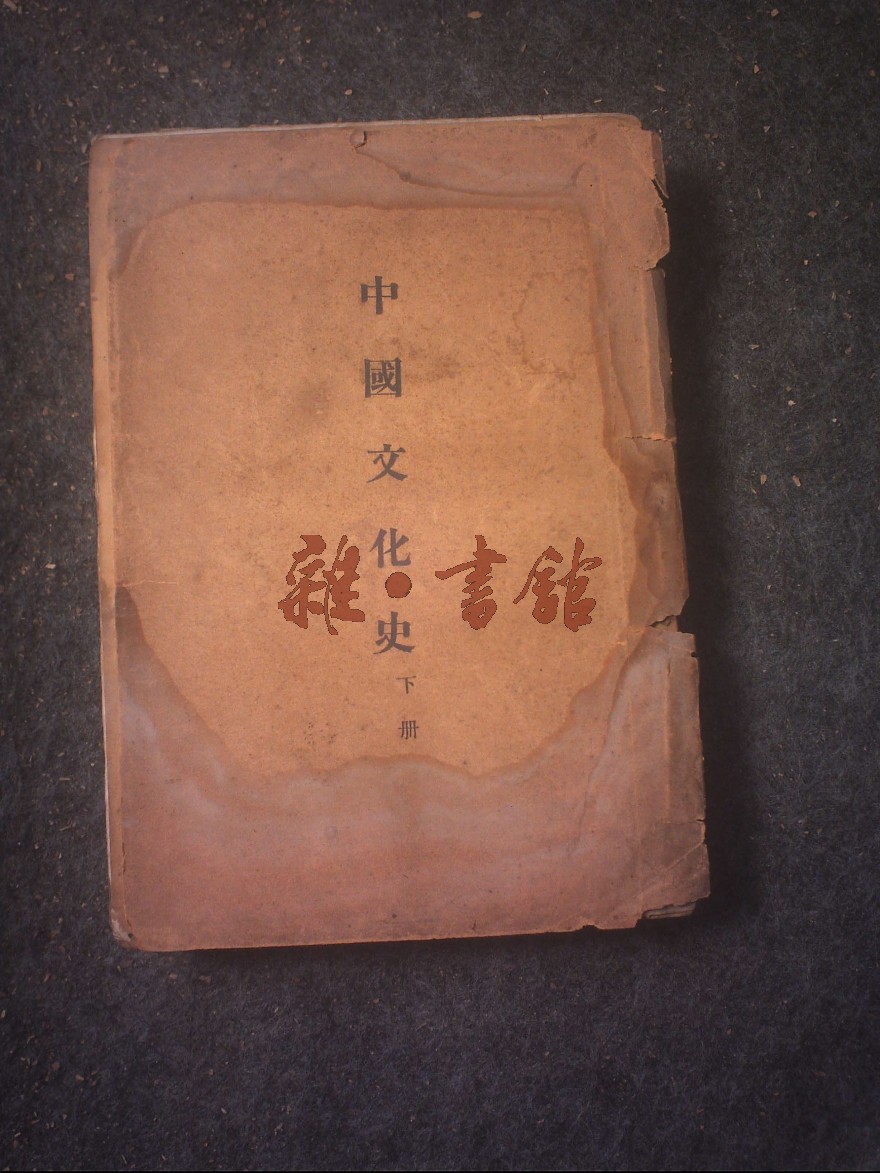 中國文化史
下册
雜·書館